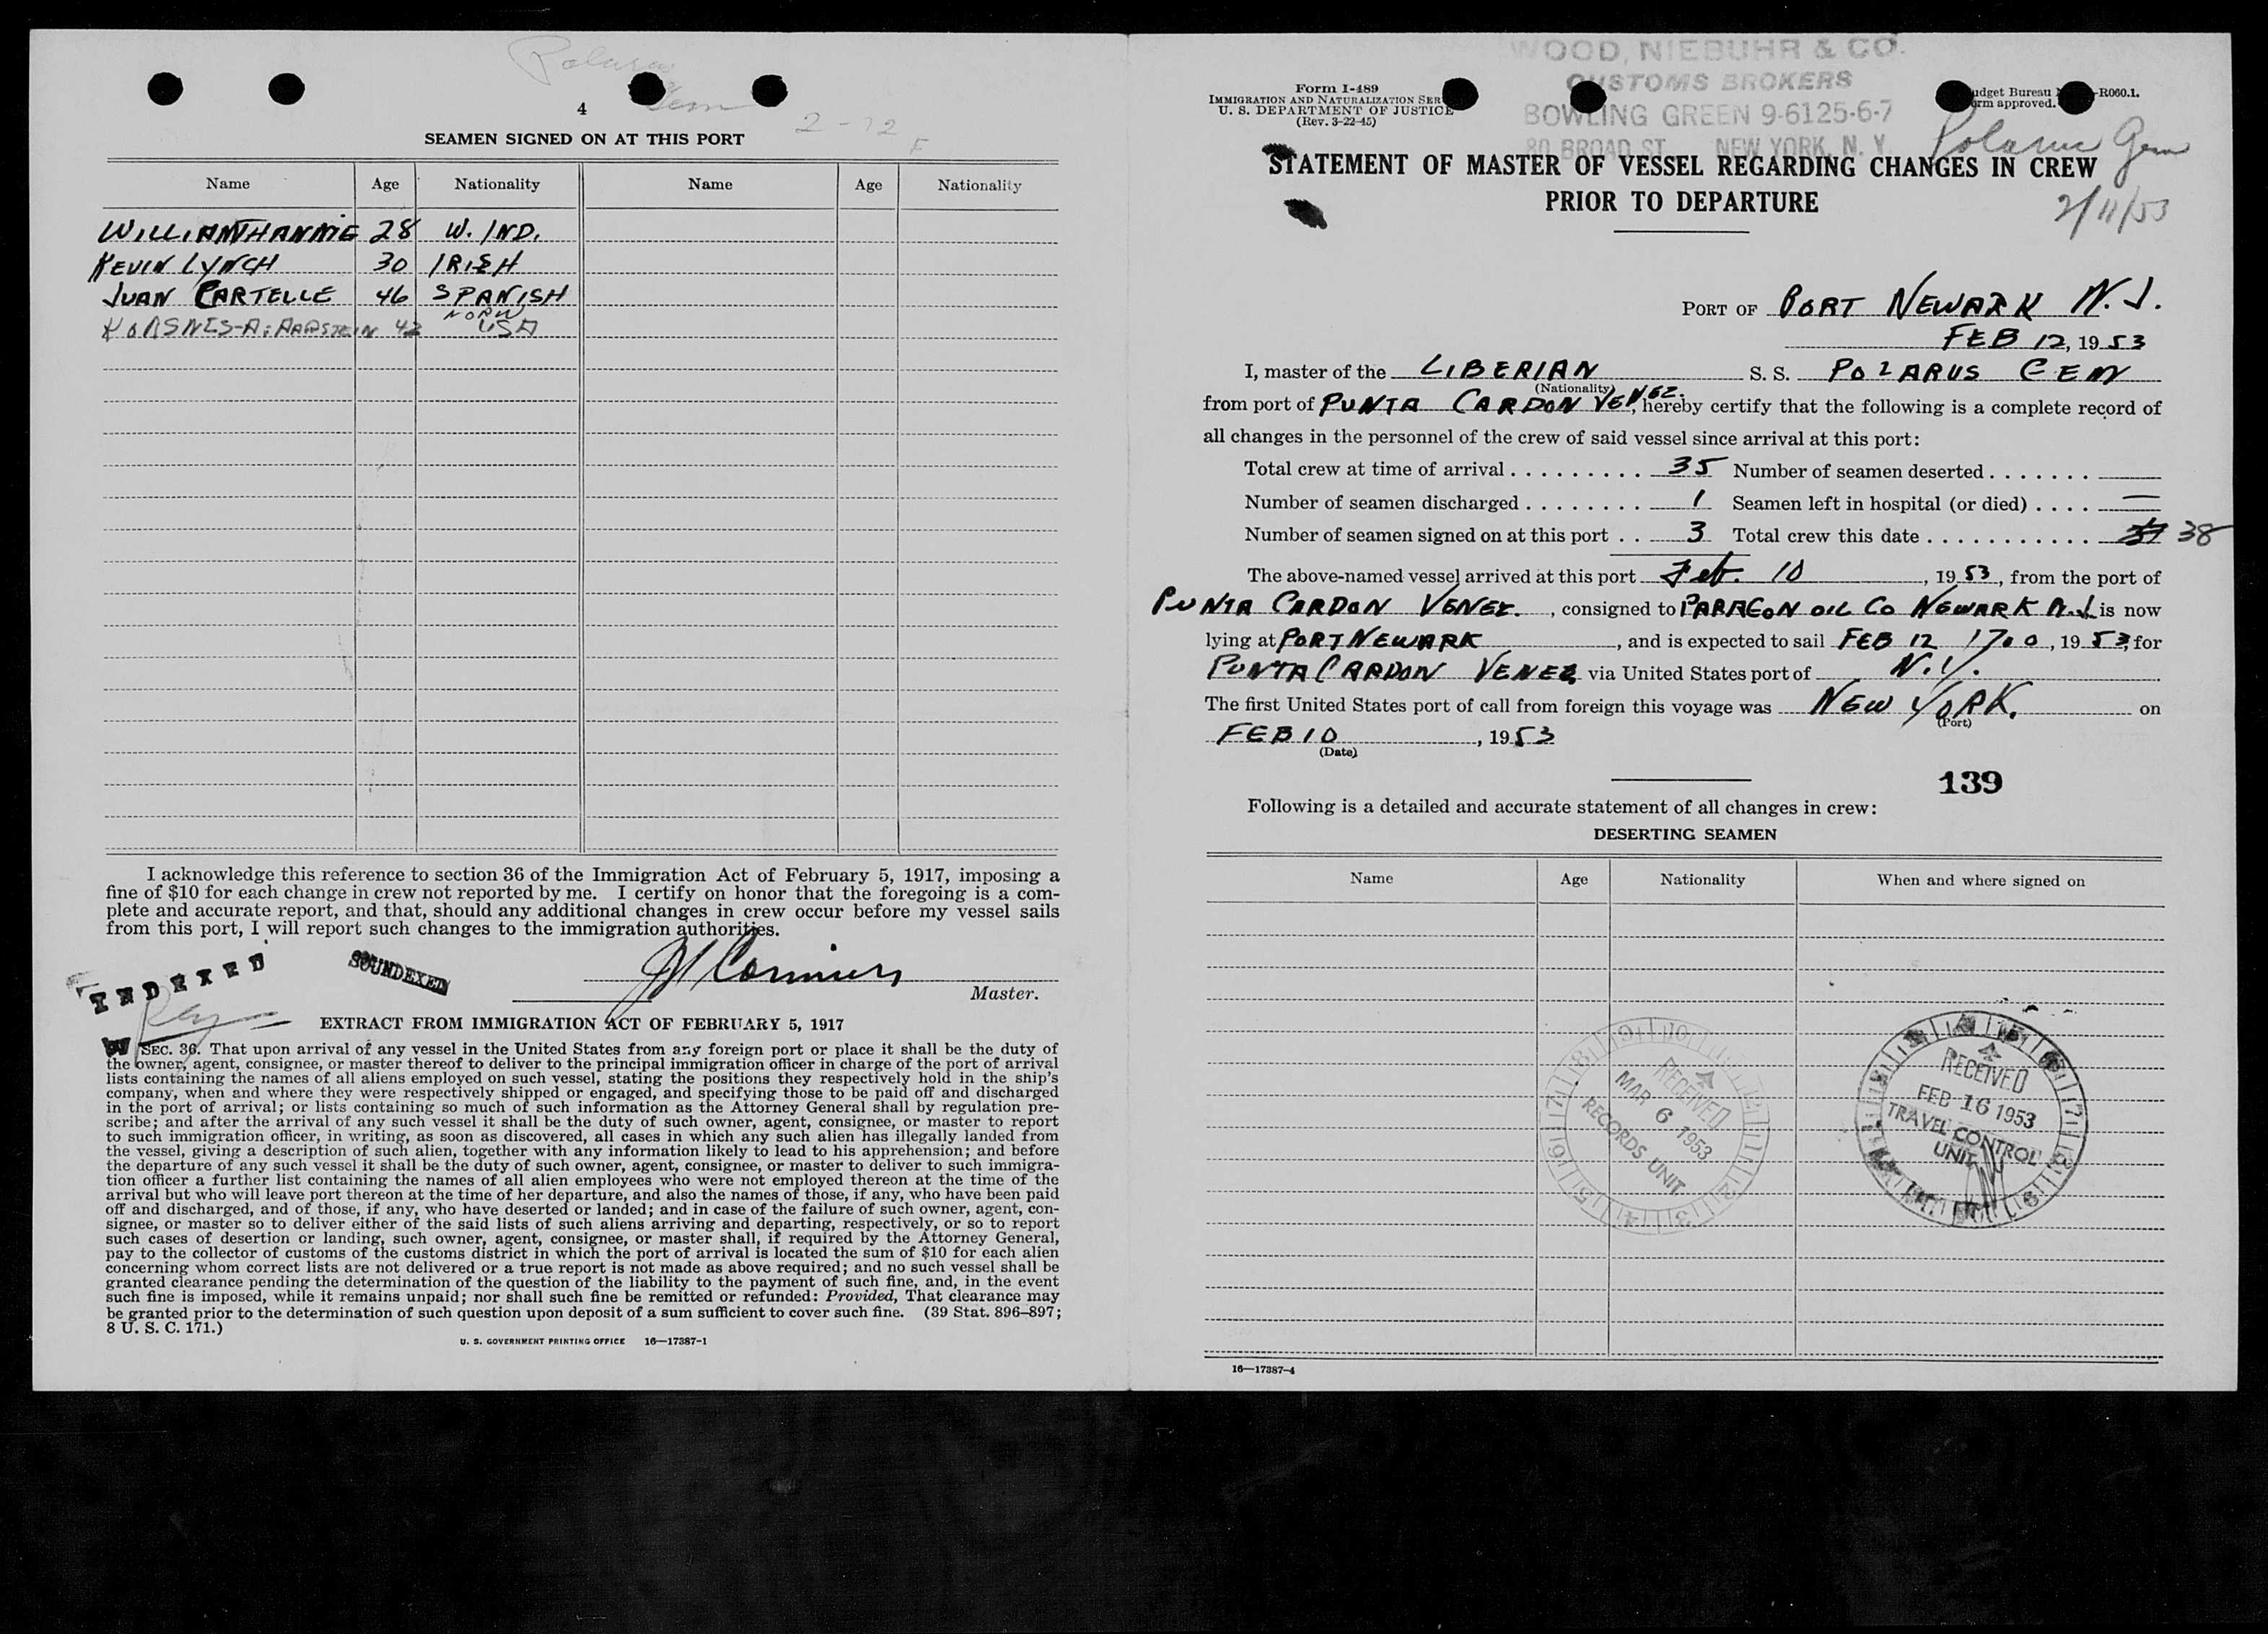 Polarus
Gem
4
2-12
F
SEAMEN SIGNED ON AT THIS PORT
Name Age Nationality Name Age Nationality
28 W. IND.
KEVIN LYNCH 30 IRISH
JUAN CARTELLE 46 SPANISH
NORW
42 USA
I acknowledge this reference to section 36 of the Immigration Act of February 5, 1917, imposing a
fine of $10 for each change in crew not reported by me. I certify on honor that the foregoing is a com-
plete and accurate report, and that, should any additional changes in crew occur before my vessel sails
from this port, I will report such changes to the immigration authorities.
INDEXED
SOUNDEXED
Master.
EXTRACT FROM IMMIGRATION ACT OF FEBRUARY 5, 1917
by SEC. 36. That upon arrival of any vessel in the United States from any foreign port or place it shall be the duty of
the owner, agent, consignee, or master thereof to deliver to the principal immigration officer in charge of the port of arrival
lists containing the names of all aliens employed on such vessel, stating the positions they respectively hold in the ship's
company, when and where they were respectively shipped or engaged, and specifying those to be paid off and discharged
in the port of arrival; or lists containing so much of such information as the Attorney General shall by regulation pre-
scribe; and after the arrival of any such vessel it shall be the duty of such owner, agent, consignee, or master to report
to such immigration officer, in writing, as soon as discovered, all cases in which any such alien has illegally landed from
the vessel, giving a description of such alien, together with any information likely to lead to his apprehension; and before
the departure of any such vessel it shall be the duty of such owner, agent, consignee, or master to deliver to such immigra-
tion officer a further list containing the names of all alien employees who were not employed thereon at the time of the
arrival but who will leave port thereon at the time of her departure, and also the names of those, if any, who have been paid
off and discharged, and of those, if any, who have deserted or landed; and in case of the failure of such owner, agent, con-
signee, or master so to deliver either of the said lists of such aliens arriving and departing, respectively, or so to report
such cases of desertion or landing, such owner, agent, consignee, or master shall, if required by the Attorney General,
pay to the collector of customs of the customs district in which the port of arrival is located the sum of $10 for each alien
concerning whom correct lists are not delivered or a true report is not made as above required; and no such vessel shall be
granted clearance pending the determination of the question of the liability to the payment of such fine, and, in the event
such fine is imposed, while it remains unpaid; nor shall such fine be remitted or refunded: Provided, That clearance may
be granted prior to the determination of such question upon deposit of a sum sufficient to cover such fine. (39 Stat. 896–897;
8 U. S. C. 171.)
U. S. GOVERNMENT PRINTING OFFICE 16—17387-1
WOOD, NIEBUHR & CO.
CUSTOMS BROKERS
BOWLING GREEN 9-6125-6-7
80 BROAD ST. NEW YORK, N. Y.
Form I-489
IMMIGRATION AND NATURALIZATION SER
U. S. DEPARTMENT OF JUSTICE
(Rev. 3-22-45)
udget Bureau -R060.1.
orm approved.
Polarus Gem
2/11/53
STATEMENT OF MASTER OF VESSEL REGARDING CHANGES IN CREW
PRIOR TO DEPARTURE
PORT OF PORT NEWARK N.J.
FEB 12, 1953
I, master of the LIBERIAN S. S. POLARUS GEM
(Nationality)
from port of PUNTA CARDON VENEZ., hereby certify that the following is a complete record of
all changes in the personnel of the crew of said vessel since arrival at this port:
Total crew at time of arrival . . . . . . . . . 35 Number of seamen deserted . . . . . . .
Number of seamen discharged . . . . . . . . 1 Seamen left in hospital (or died) . . . . —
Number of seamen signed on at this port . . 3 Total crew this date . . . . . . . . . . . . 37 38
The above-named vessel arrived at this port Feb. 10, 1953, from the port of
PUNTA CARDON VENEZ., consigned to PARAGON OIL CO NEWARK N.J. is now
lying at PORT NEWARK, and is expected to sail FEB 12 1700, 1953, for
PUNTA CARDON VENEZ via United States port of N.Y.
The first United States port of call from foreign this voyage was NEW YORK. on
(Port)
FEB 10, 1953
(Date)
139
Following is a detailed and accurate statement of all changes in crew:
DESERTING SEAMEN
Name Age Nationality When and where signed on
RECEIVED
MAR 6 1953
RECORDS UNIT
RECEIVED
FEB 16 1953
TRAVEL CONTROL
UNIT
16—17387-4